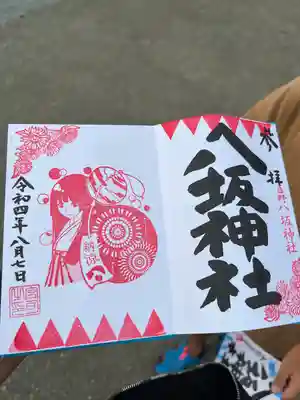 奉拝
八坂神社
八坂神社
令和四年八月七日